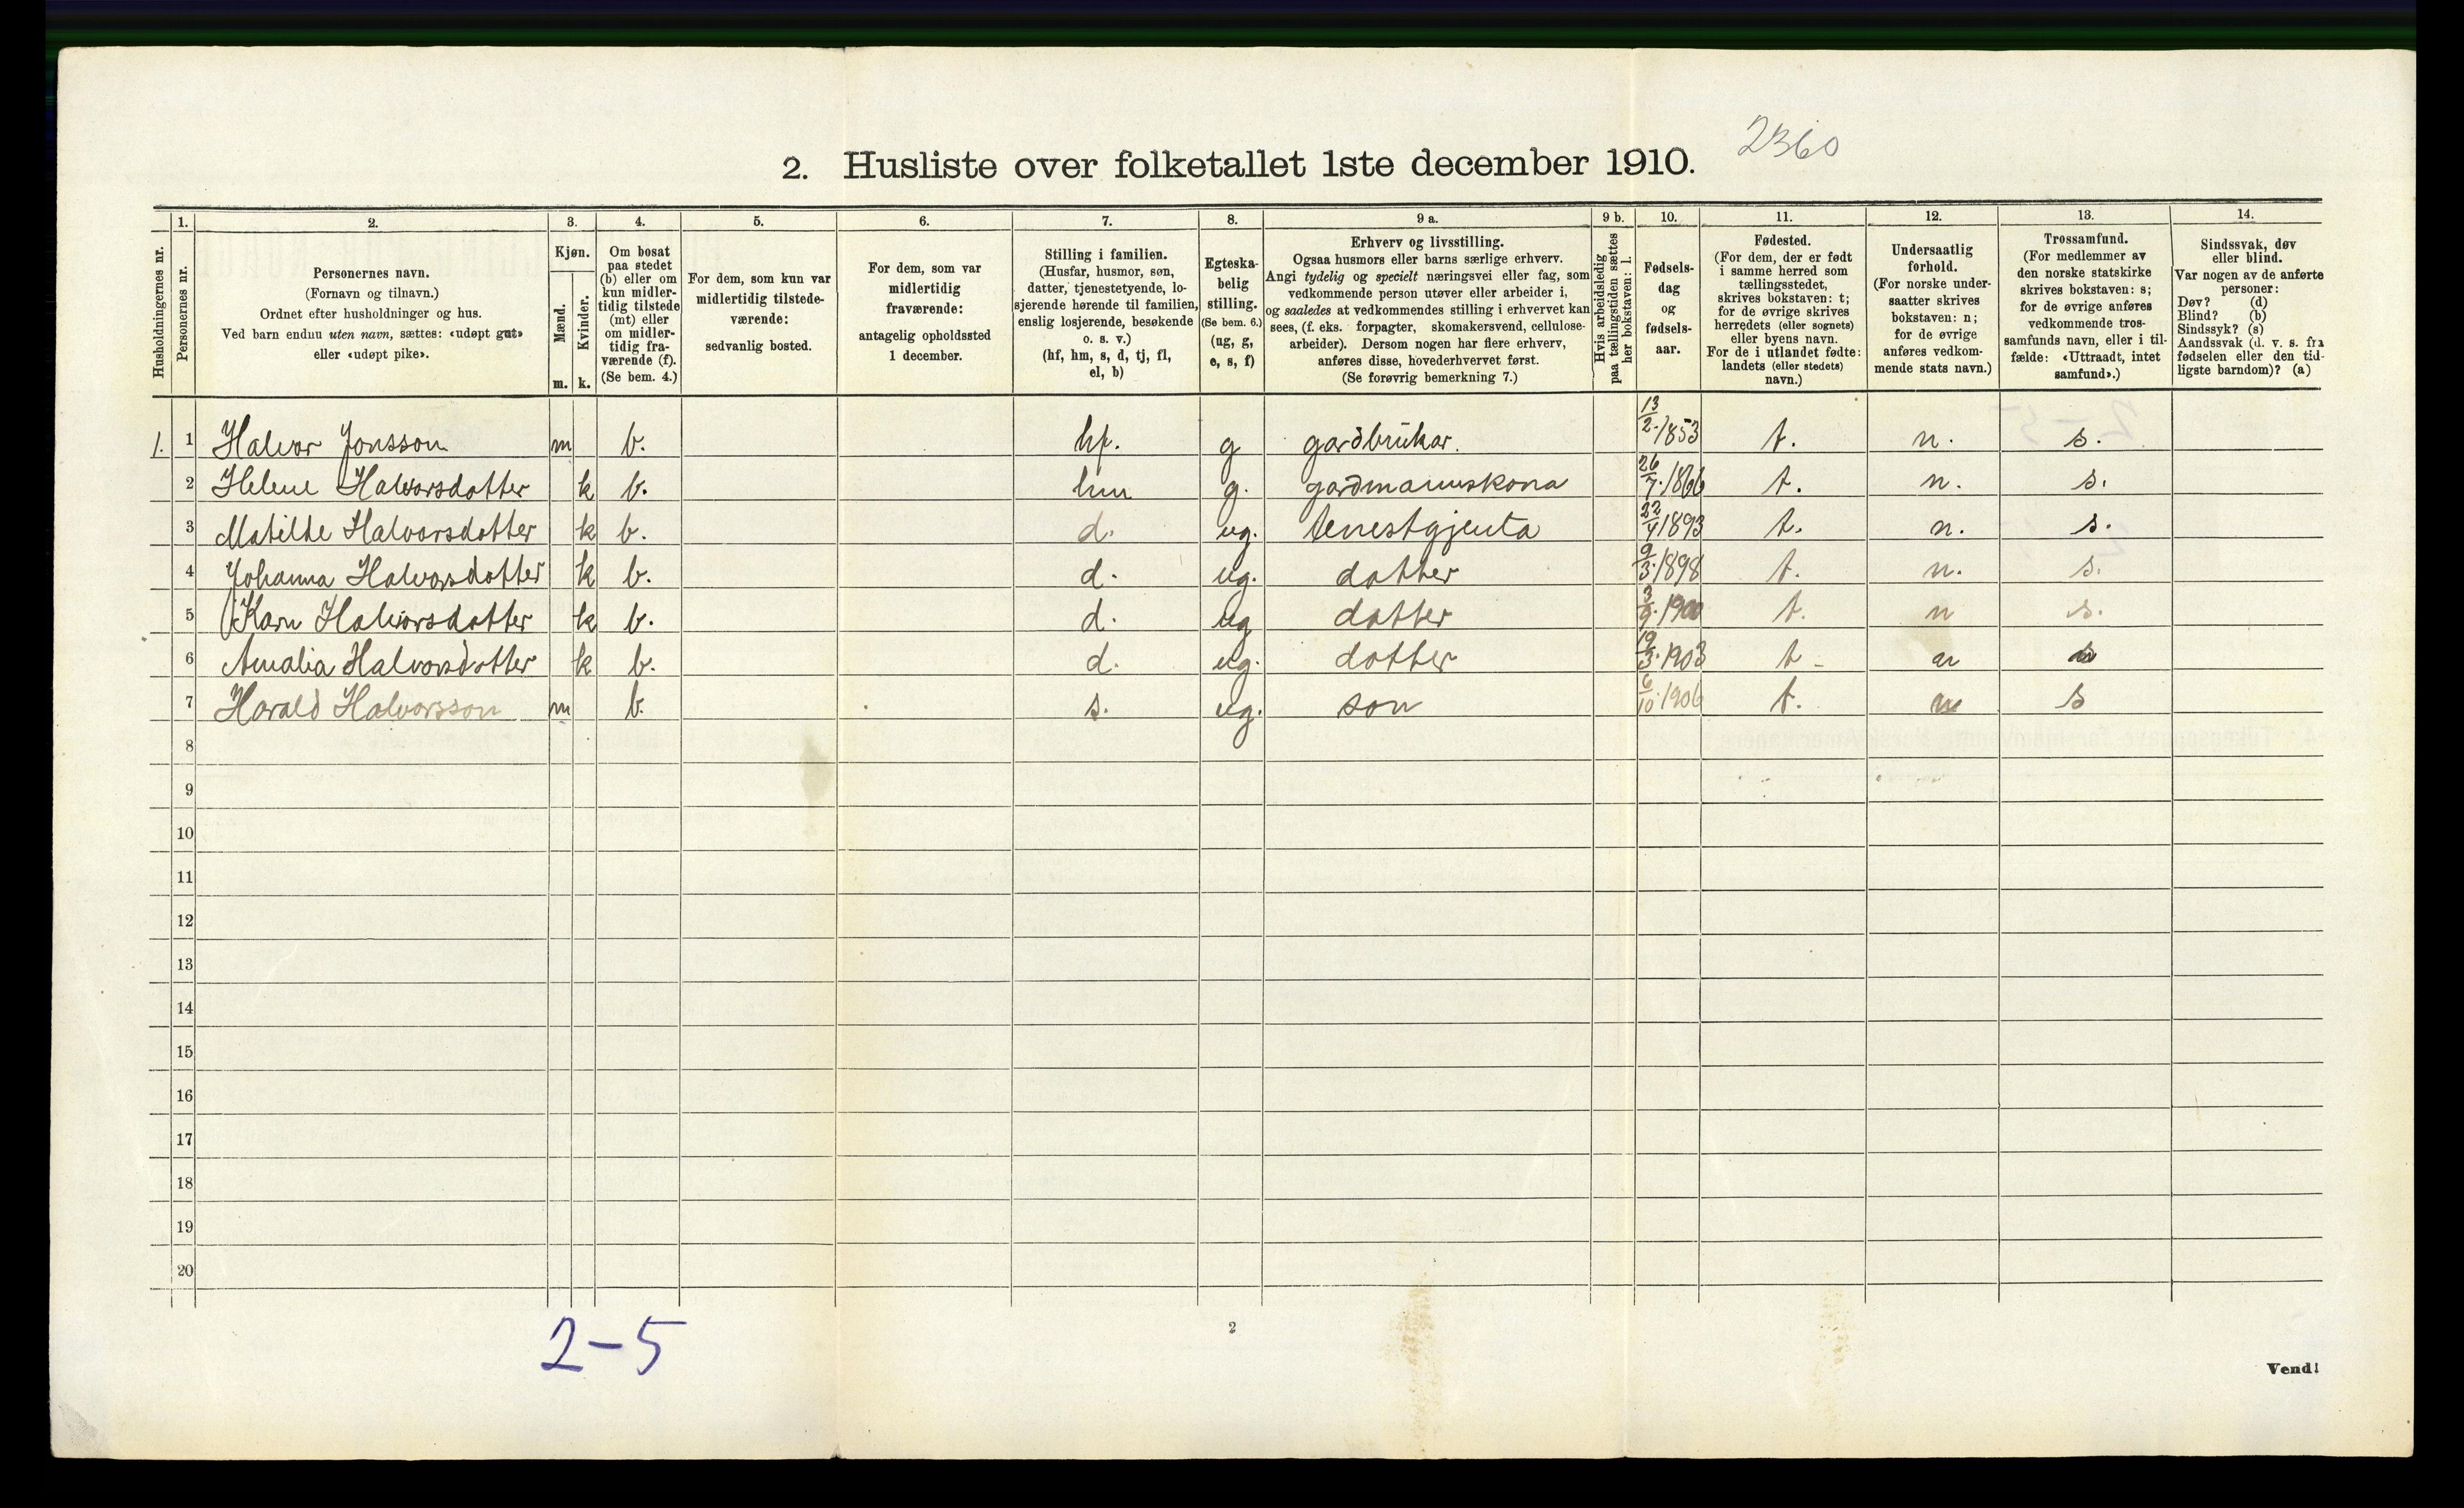 2360
2. Husliste over folketallet 1ste december 1910.
Husholdningernes nr.
1.
Personernes nr.
2.
Personernes navn.
(Fornavn og tilnavn.)
Ordnet efter husholdninger og hus.
Ved barn endnu uten navn, sættes: «udøpt gut»
eller «udøpt pike».
3.
Kjøn.
Mænd.
Kvinder.
m. k.
4.
Om bosat
paa stedet
(b) eller om
kun midler-
tidig tilstede
(mt) eller
om midler-
tidig fra-
værende (f).
(Se bem. 4.)
5.
For dem, som kun var
midlertidig tilstede-
værende:
sedvanlig bosted.
6.
For dem, som var
midlertidig
fraværende:
antagelig opholdssted
1 december.
7.
Stilling i familien.
(Husfar, husmor, søn,
datter, tjenestetyende, lo-
sjerende hørende til familien,
enslig losjerende, besøkende
o. s. v.)
(hf, hm, s, d, tj, fl,
el, b)
8.
Egteska-
belig
stilling.
(Se bem. 6.)
(ug, g,
e, s, f)
9 a.
Erhverv og livsstilling.
Ogsaa husmors eller barns særlige erhverv.
Angi tydelig og specielt næringsvei eller fag, som
vedkommende person utøver eller arbeider i,
og saaledes at vedkommendes stilling i erhvervet kan
sees, (f. eks. forpagter, skomakersvend, cellulose-
arbeider). Dersom nogen har flere erhverv,
anføres disse, hovederhvervet først.
(Se forøvrig bemerkning 7.)
9 b.
Hvis arbeidsledig
paa tællingstiden sættes
her bokstaven: l.
10.
Fødsels-
dag
og
fødsels-
aar.
11.
Fødested.
(For dem, der er født
i samme herred som
tællingsstedet,
skrives bokstaven: t;
for de øvrige skrives
herredets (eller sognets)
eller byens navn.
For de i utlandet fødte:
landets (eller stedets)
navn.)
12.
Undersaatlig
forhold.
(For norske under-
saatter skrives
bokstaven: n;
for de øvrige
anføres vedkom-
mende stats navn.)
13.
Trossamfund.
(For medlemmer av
den norske statskirke
skrives bokstaven: s;
for de øvrige anføres
vedkommende tros-
samfunds navn, eller i til-
fælde: «Uttraadt, intet
samfund».)
14.
Sindssvak, døv
eller blind.
Var nogen av de anførte
personer:
Døv? (d)
Blind? (b)
Sindssyk? (s)
Aandssvak (d. v. s. fra
fødselen eller den tid-
ligste barndom)? (a)
1. 1 Halvor Jonsson m b. hf. g gardbrukar. 13/2 1853 t. n. s.
2 Helene Halvorsdotter k b. hm g. gardmannskona 26/7 1866 t. n. s.
3 Matilde Halvorsdotter k b. d. ug. tenestgjenta 22/4 1893 t. n. s.
4 Johanna Halvorsdotter k b. d. ug. dotter 9/3 1898 t. n. s.
5 Karn Halvorsdotter k b. d. ug dotter 3/9 1900 t. n s.
6 Amalia Halvorsdotter k b. d. ug. dotter 19/3 1903 t n s
7 Harald Halvorsson m b. s. ug. son 6/10 1906 t. n s
8
9
10
11
12
13
14
15
16
17
18
19
20
2-5
2
Vend!